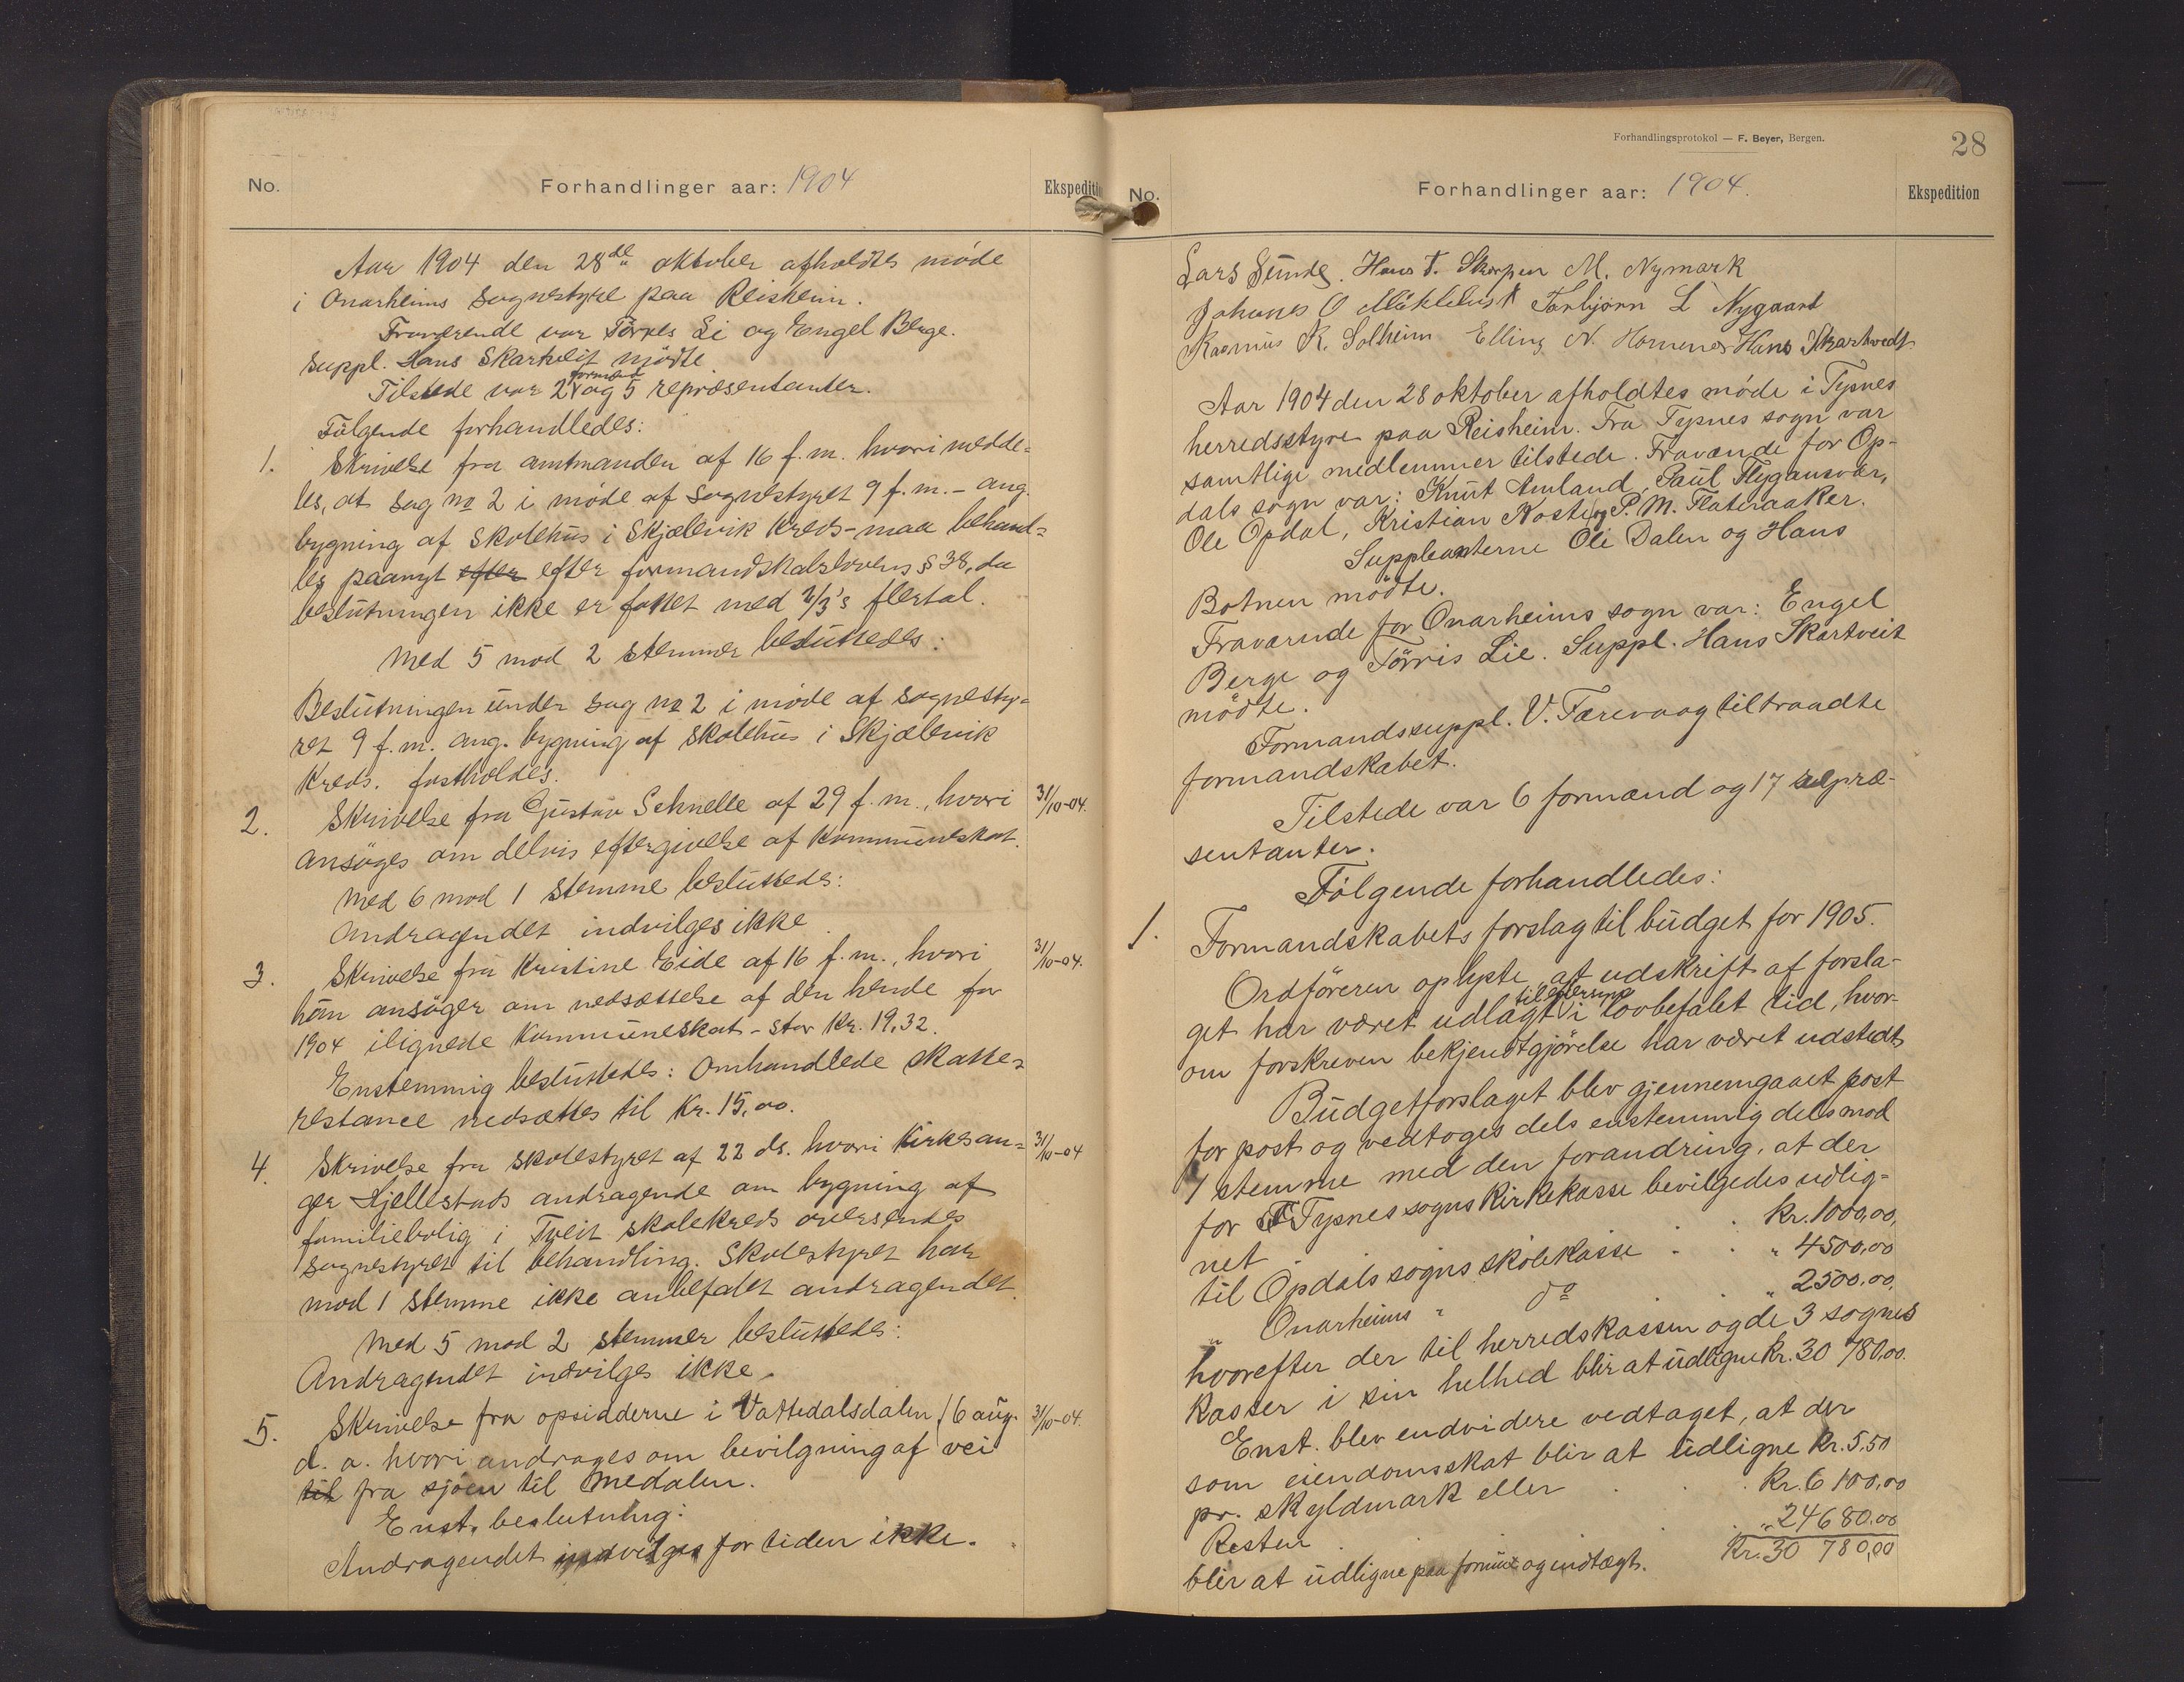 No.
Forhandlinger aar: 1904
Ekspeditio
Aar 1904 den 28de oktober afholdtes møde
i Onarheims sognestyre paa Reisheim.
Fraværende var Tørres Li og Engel Berge.
Suppl. Hans Skartveit mødte
Tilstede var 2 formænd og 5 repræsentanter.
Følgende forhandledes:
1. Skrivelse fra amtmanden af 16 f.m. hvori medde=
les, at sag no 2 i møde af sognestyret 9 f.m. - ang.
bygning af skolehus i Skjælevik Kreds - maa behand=
les paanyt efter efter formandskabslovens § 38, da
beslutningen ikke er fattet med 2/3's flertal.
Med 5 mod 2 stemmer besluttedes:
Beslutningen under sag no 2 i møde af sognesty=
ret 9 f.m. ang. bygning af skolehus i Skjælevik
Kreds. fastholdes.
2. Skrivelse fra Gustav Schnelle af 29 f.m., hvori 31/10-04.
ansøges om delvis eftergivelse af Kommuneskat.
Med 6 mod 1 stemme besluttedes:
Andragendet indvilges ikke.
3. Skrivelse fra Kristine Eide af 16 f.m., hvori 31/10-04.
hun ansøger om nedsættelse af den hende for
1904 ilignede Kommuneskat - stor Kr. 19,32.
Enstemmig besluttedes: Omhandlede skatte=
restance nedsættes til Kr. 15,00.
4. Skrivelse fra skolestyret af 22 ds. hvori Kirkesan= 31/10-04
ger Hjellestads andragende om bygning af
familiebolig i Tveit skolekreds oversendes
sognestyret til behandling. Skolestyret har
mod 1 stemme ikke anbefalet andragendet.
Med 5 mod 2 stemmer besluttedes:
Andragendet indvilges ikke.
5. Skrivelse fra opsidderne i Vattedalsdalen 16 aug. 31/10-04.
d.a. hvori andrages om bevilgning af vei
til fra sjøen til Medalen.
Enst. beslutning:
Andragendet indvilges for tiden ikke.
Forhandlingsprotokol — F. Beyer, Bergen.
28
No.
Forhandlinger aar: 1904.
Ekspedition
Lars Sunde. Hans T. Skorpen M. Nymark
Johanes O Möklebust Torbjørn L Nygaard
Rasmus K. Solheim Elling N. Hammer Hans Skartvedt
Aar 1904 den 28 oktober afholdtes møde i Tysnes
herredsstyre paa Reisheim. Fra Tysnes sogn var
samtlige medlemmer tilstede. Fraværende for Op-
dals sogn var: Knut Amland, Paul Flygansvær,
Ole Opdal, Kristian Koste og P. M. Flateraaker.
Suppleanterne Ole Dalen og Hans
Botnen mødte.
Fraværende for Onarheims sogn var: Engel
Berge og Tørris Lie. Suppl. Hans Skartveit
mødte.
Formandssuppl. V. Færevaag tiltraadte
formandskabet.
Tilstede var 6 formænd og 17 repræ-
sentanter.
Følgende forhandledes:
1. Formandskabets forslag til budget for 1905.
Ordføreren oplyste at udskrift af forsla-
get har været udlagt til eftersyn i lovbefalet tid, hvor-
om forskreven bekjendtgjørelse har været udstedt
Budgetforslaget blev gjennemgaaet post
for post og vedtoges dels enstemmig dels mod
1 stemme med den forandring, at der
for Tysnes sogns Kirkekasse bevilgedes udlig=
net . . Kr. 1000,00,
til Opdals sogns skolekasse . . " 4500,00
" Onarheims " do . " 2500,00,
hvorefter der til herredskassen og de 3 sognes
Kasser i sin helhed blir at udligne Kr. 30 780,00.
Enst. blev endvidere vedtaget, at der
som eiendomsskat blir at udligne Kr. 5,50
pr. skyldmark eller . . . Kr. 6 100,00
Resten . . . " 24680.00
blir at udligne paa formue og indtægt. Kr. 30 780,00